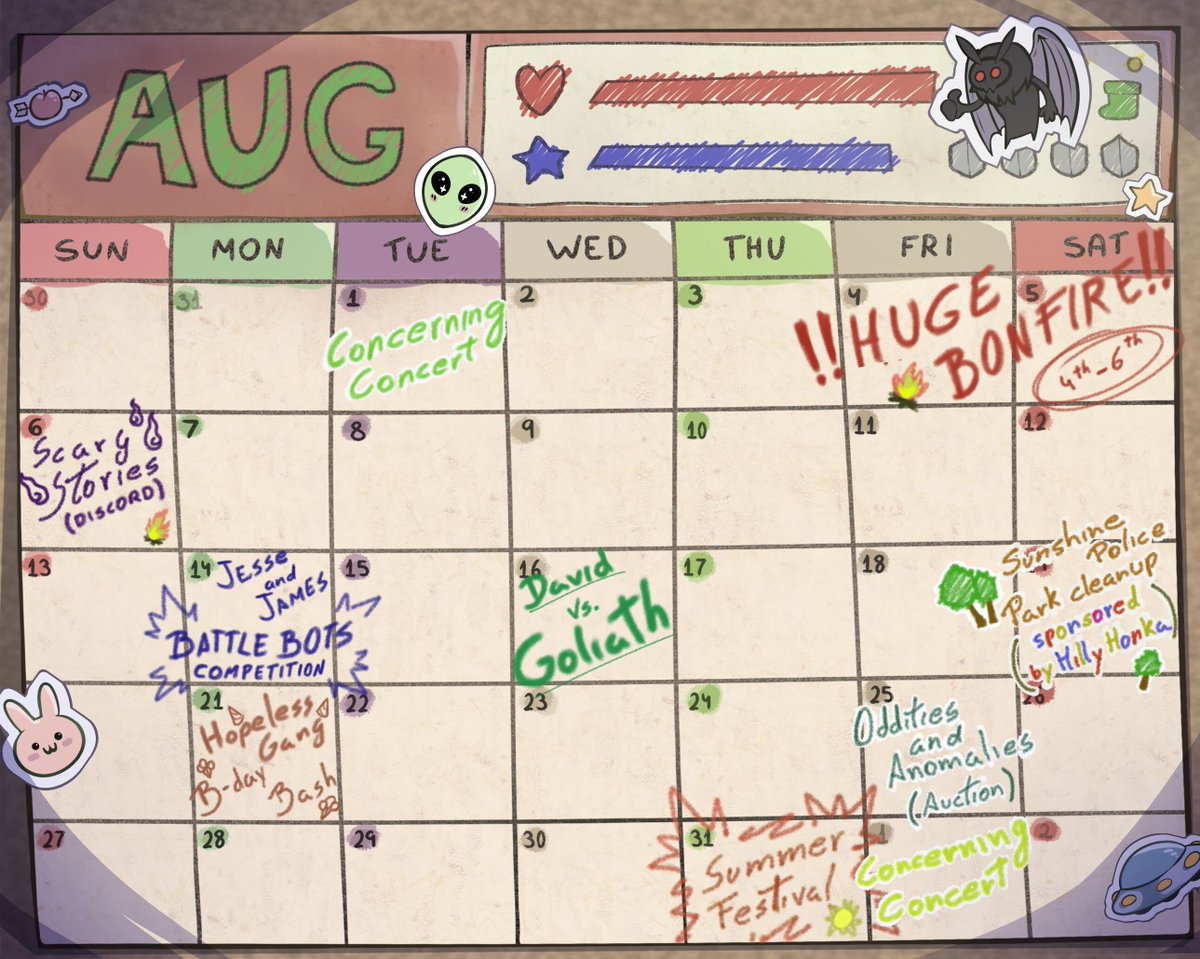 AUG
SUN MON TUE WED THU FRI SAT
30 31 1 2 3 4 5
Concerning
Concert
!!HUGE
BONFIRE!!
4th-6th
6 7 8 9 10 11 12
Scary
Stories
(DISCORD)
13 14 15 16 17 18
JESSE
and
JAMES
BATTLE BOTS
COMPETITION
David
vs.
Goliath
Sunshine
Police
Park cleanup
(sponsored
by Milly Honka)
21 22 23 24 25 26
Hopeless
Gang
B-day Bash
Oddities
and
Anomalies
(Auction)
27 28 29 30 31 1 2
Summer
Festival
Concerning
Concert